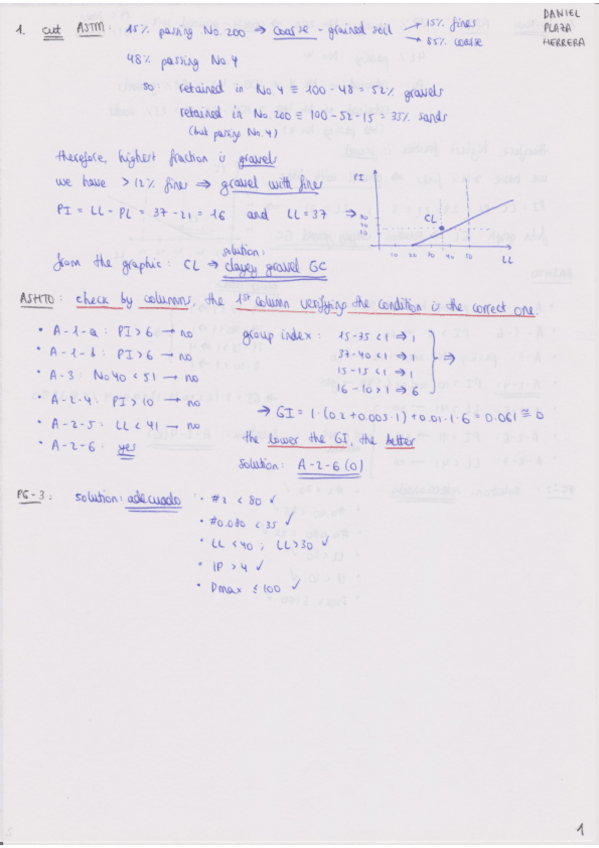 DANIEL
PLAZA
HERRERA
1. cut ASTM: 15% passing No. 200 → coarse-grained soil → 15% fines
→ 85% coarse
48% passing No 4
so retained in No 4 ≡ 100-48 = 52% gravels
retained in No 200 ≡ 100-52-15 = 33% sands
(but passing No 4)
therefore, highest fraction is gravel
we have >12% fines ⇒ gravel with fine
PI = LL - PL = 37-21 = 16 and LL=37 ⇒
PI
CL
10 20 30 40 50
LL
solution:
from the graphic: CL → clayey gravel GC
ASHTO: check by columns, the 1st column verifying the condition is the correct one.
• A-1-a: PI>6 → no
• A-1-b: PI>6 → no
• A-3: No40<51 → no
• A-2-4: PI>10 → no
• A-2-5: LL<41 → no
• A-2-6: yes
group index: 15-35<1 ⇒ 1
37-40<1 ⇒ 1
15-15<1 ⇒ 1
16-10>1 ⇒ 6
⇒
→ GI = 1·(0.2+0.005·1)+0.01·1·6 = 0.061 ≅ 0
the lower the GI, the better
solution: A-2-6(0)
PG-3: solution: adecuado
• #2 < 80 ✓
• #0.080 < 35 ✓
• LL<40; LL>30 ✓
• IP>4 ✓
• Dmax ≤ 100 ✓
1